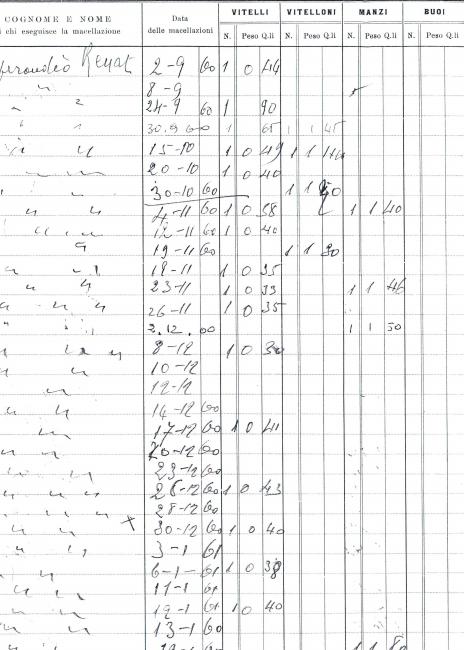 COGNOME E NOME Data VITELLI VITELLONI MANZI BUOI
chi eseguisce la macellazione delle macellazioni N. Peso Q.li N. Peso Q.li N. Peso Q.li N.
Renat 2-9 60 1 0 44
" 8-9
" 24-9 60 1 90
" 30.9 60 1 65 1 1 45
" " 15-10 1 0 49 1 1
" 20-10 1 0 40
30-10 60 1 1
" " 4-11 60 1 0 38 1 1 40
" " 12-11 60 1 0 40
" 19-11 60 1 1 30
" " 18-11 1 0 35
" " 23-11 1 0 33 1 1 46
" " 26-11 1 0 35
" " 2.12.60 1 1 50
" " 8-12 1 0 30
" 10-12
" 12-12
" " 14-12 60
" 17-12 60 1 0 41
" " 20-12 60
" " 23-12 60
" " 26-12 60 1 0 43
" " 28-12 60
" " x 30-12 60 1 0 40
" " 3-1 61
" " 6-1-61 1 0 38
" " 11-1 61
" " 12-1 61 1 0 40
" " 13-1 60
1 1 80